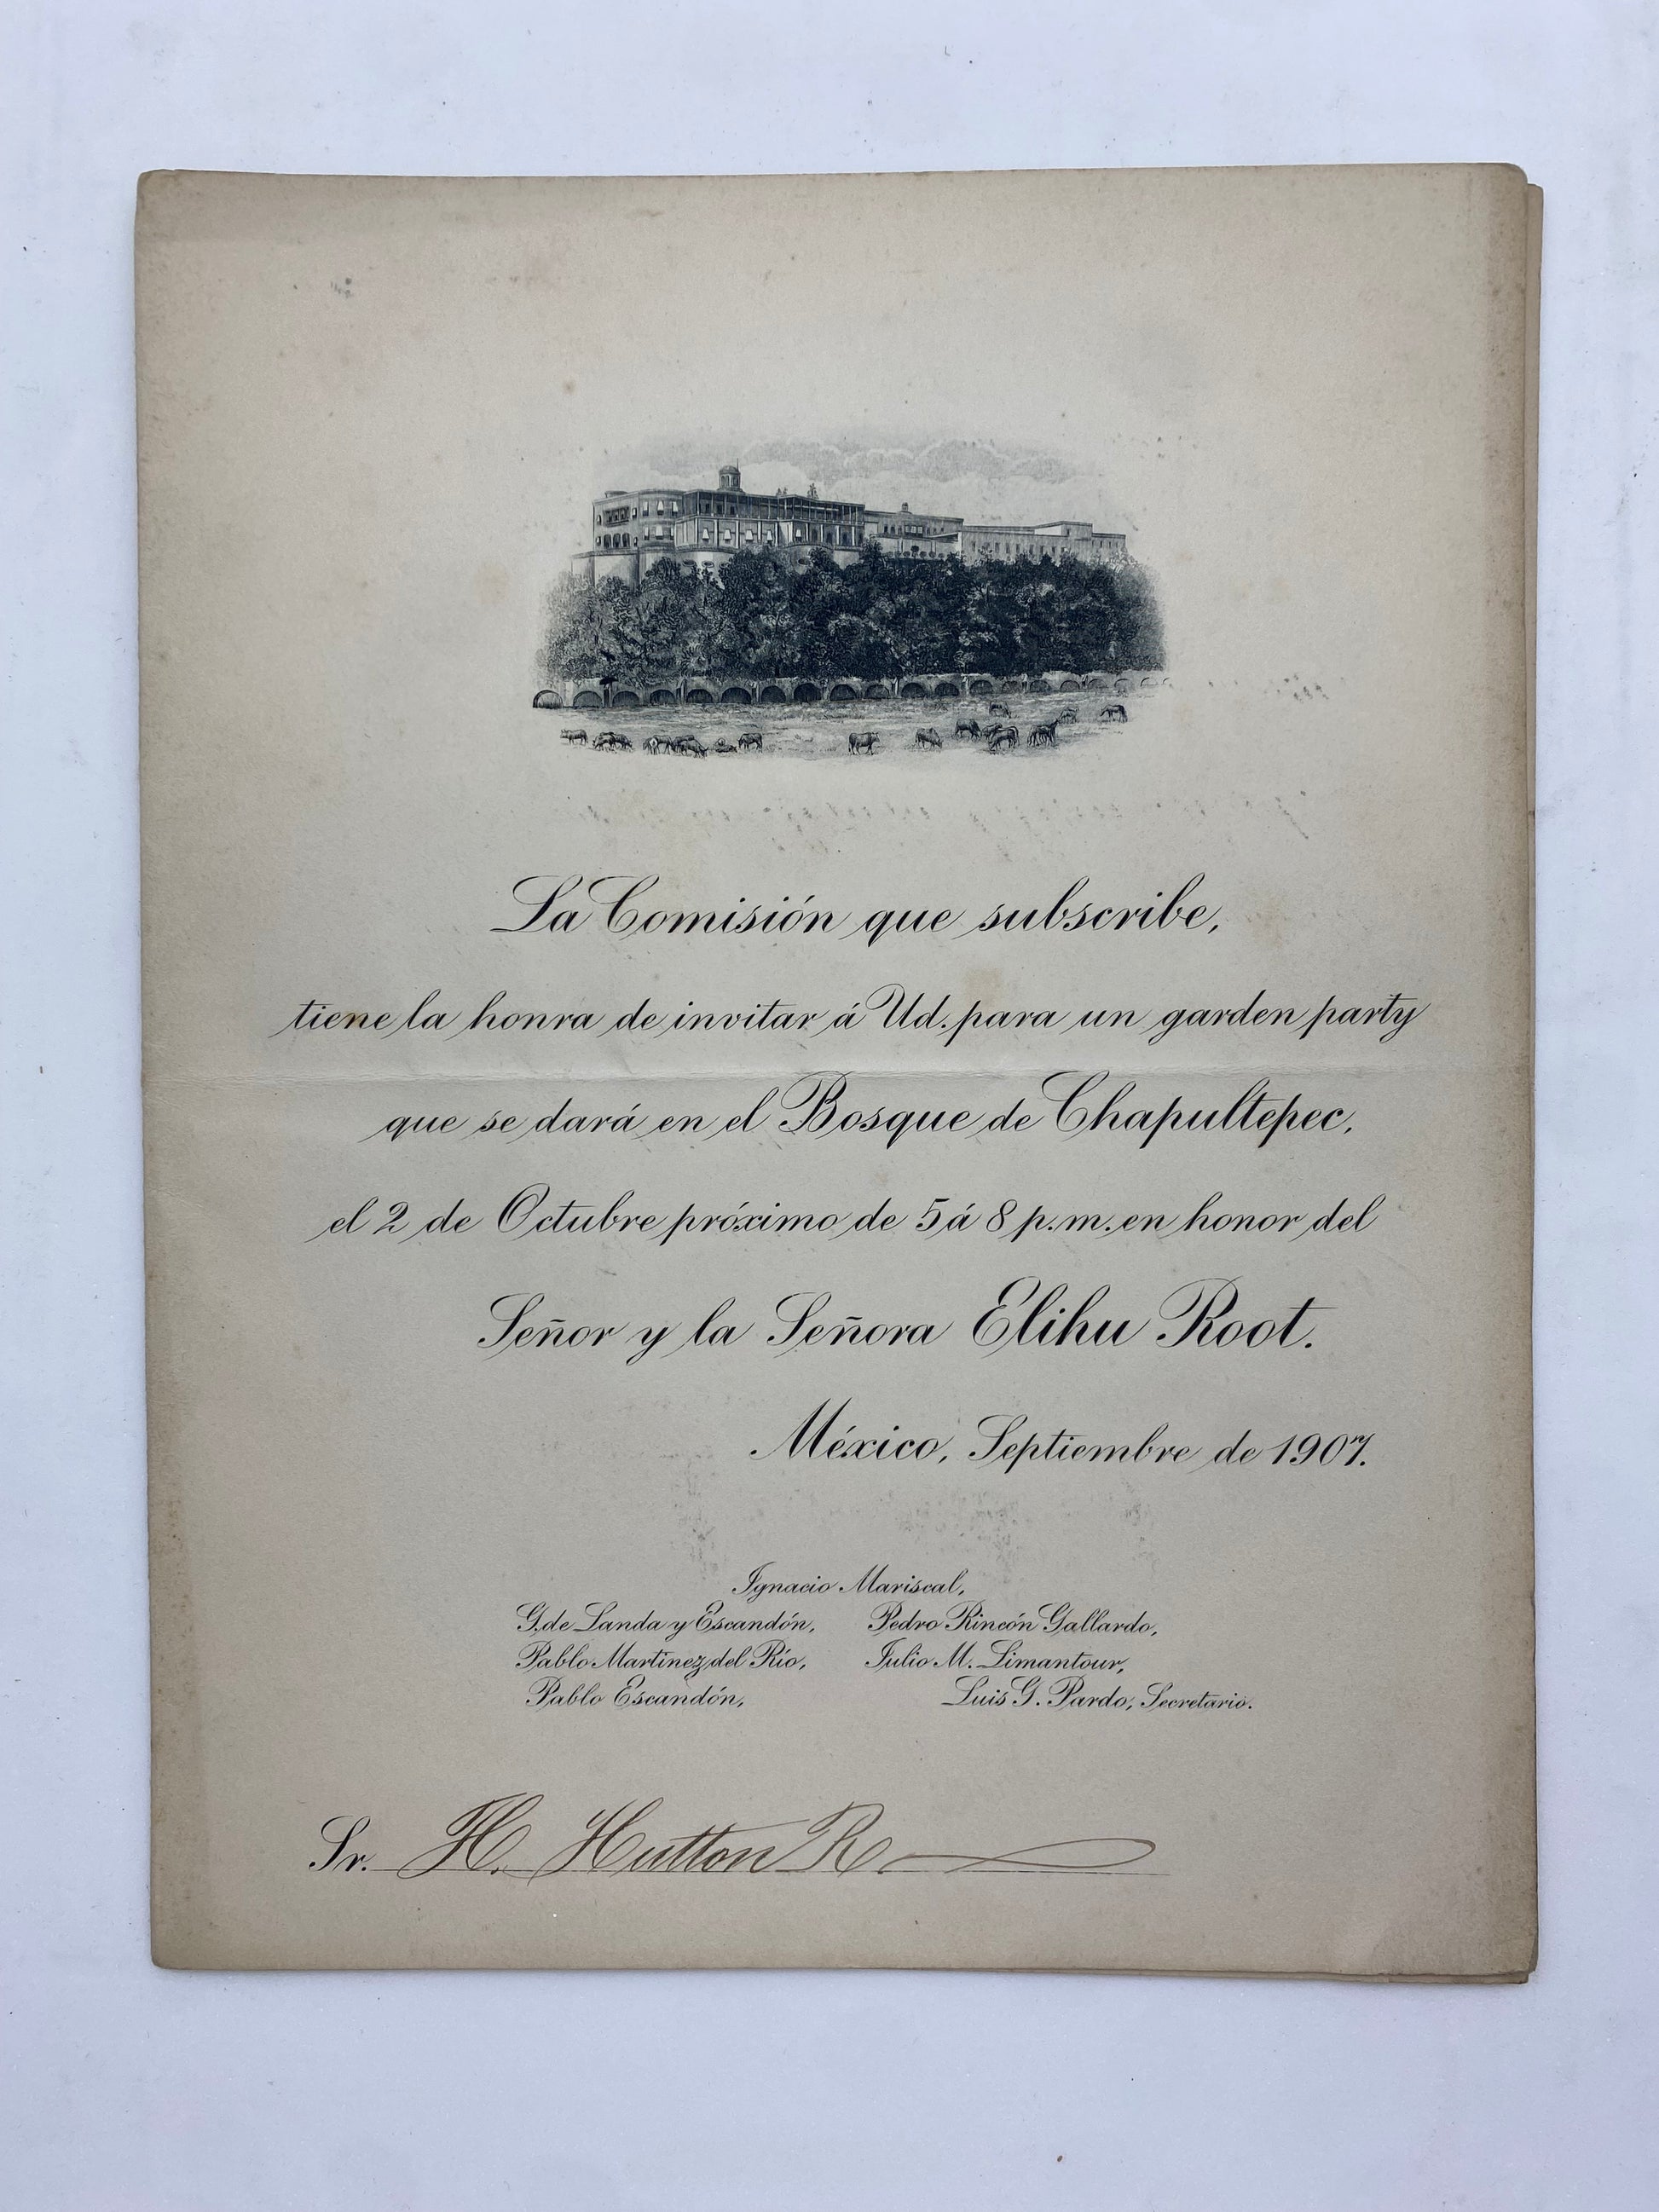 La Comisión que subscribe,
tiene la honra de invitar á Ud. para un garden party
que se dará en el Bosque de Chapultepec,
el 2 de Octubre próximo de 5 á 8 p.m. en honor del
Señor y la Señora Elihu Root.
México, Septiembre de 1907.
Ignacio Mariscal,
G. de Landa y Escandón, Pedro Rincón Gallardo,
Pablo Martinez del Río, Julio M. Limantour,
Pablo Escandón, Luis G. Pardo, Secretario.
Sr. H. Hutton R.